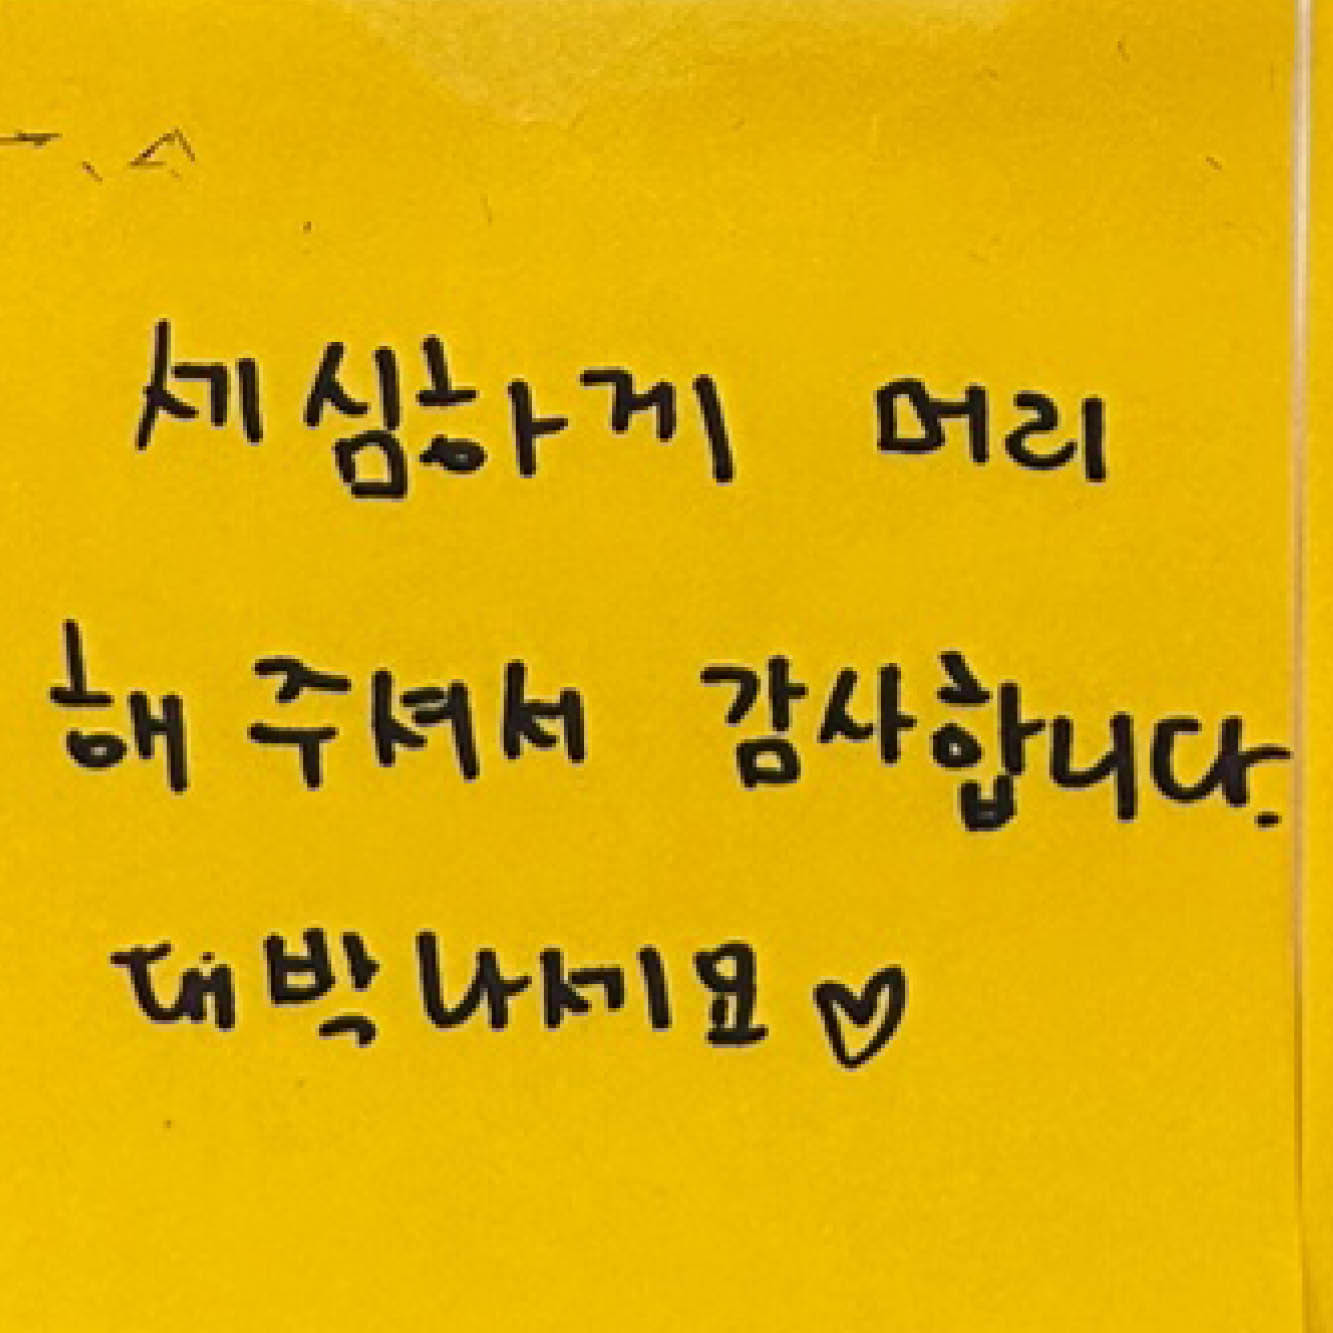 세심하게 머리
해 주셔서 감사합니다.
대박나세요♡